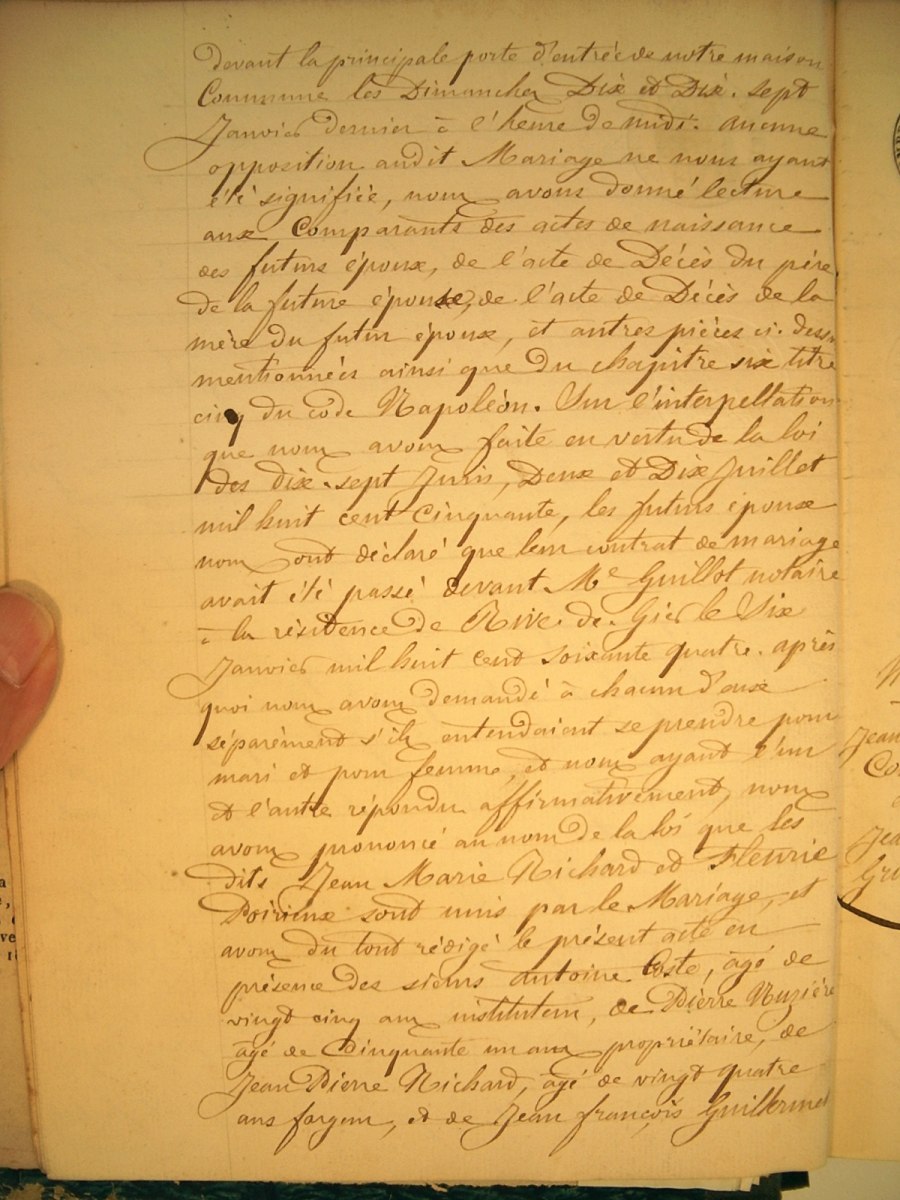 devant la principale porte d'entrée de notre maison
Commune les Dimanches Dix et Dix-sept
Janvier dernier à l'heure de midi. aucune
opposition audit Mariage ne nous ayant
été signifiée, nous avons donné lecture
aux Comparants des actes de naissance
des futurs époux, de l'acte de Décès du père
de la future épouse, de l'acte de Décès de la
mère du futur époux, et autres pièces ci-dessus
mentionnées ainsi que du chapitre six titre
cinq du code Napoléon. Sur l'interpellation
que nous avons faite en vertu de la loi
des dix-sept Juin, Deux et Dix Juillet
mil huit cent Cinquante, les futurs époux
nous ont déclaré que leur contrat de mariage
avait été passé devant Me Guillot notaire
à la résidence de Rive-de-Gier le Six
Janvier mil huit cent soixante quatre. après
quoi nous avons demandé à chacun d'eux
séparément s'ils entendaient se prendre pour
mari et pour femme, et nous ayant l'un
et l'autre répondu affirmativement, nous
avons prononcé au nom de la loi que les
dits Jean Marie Richard et Fleurie
Poirieux sont unis par le Mariage, et
avons du tout rédigé le présent acte en
présence des sieurs Antoine Coste, âgé de
vingt cinq ans instituteur, de Pierre Nuzière
âgé de Cinquante un ans propriétaire, de
Jean Pierre Richard, âgé de vingt quatre
ans forgeur, et de Jean françois Guillermet
Jean